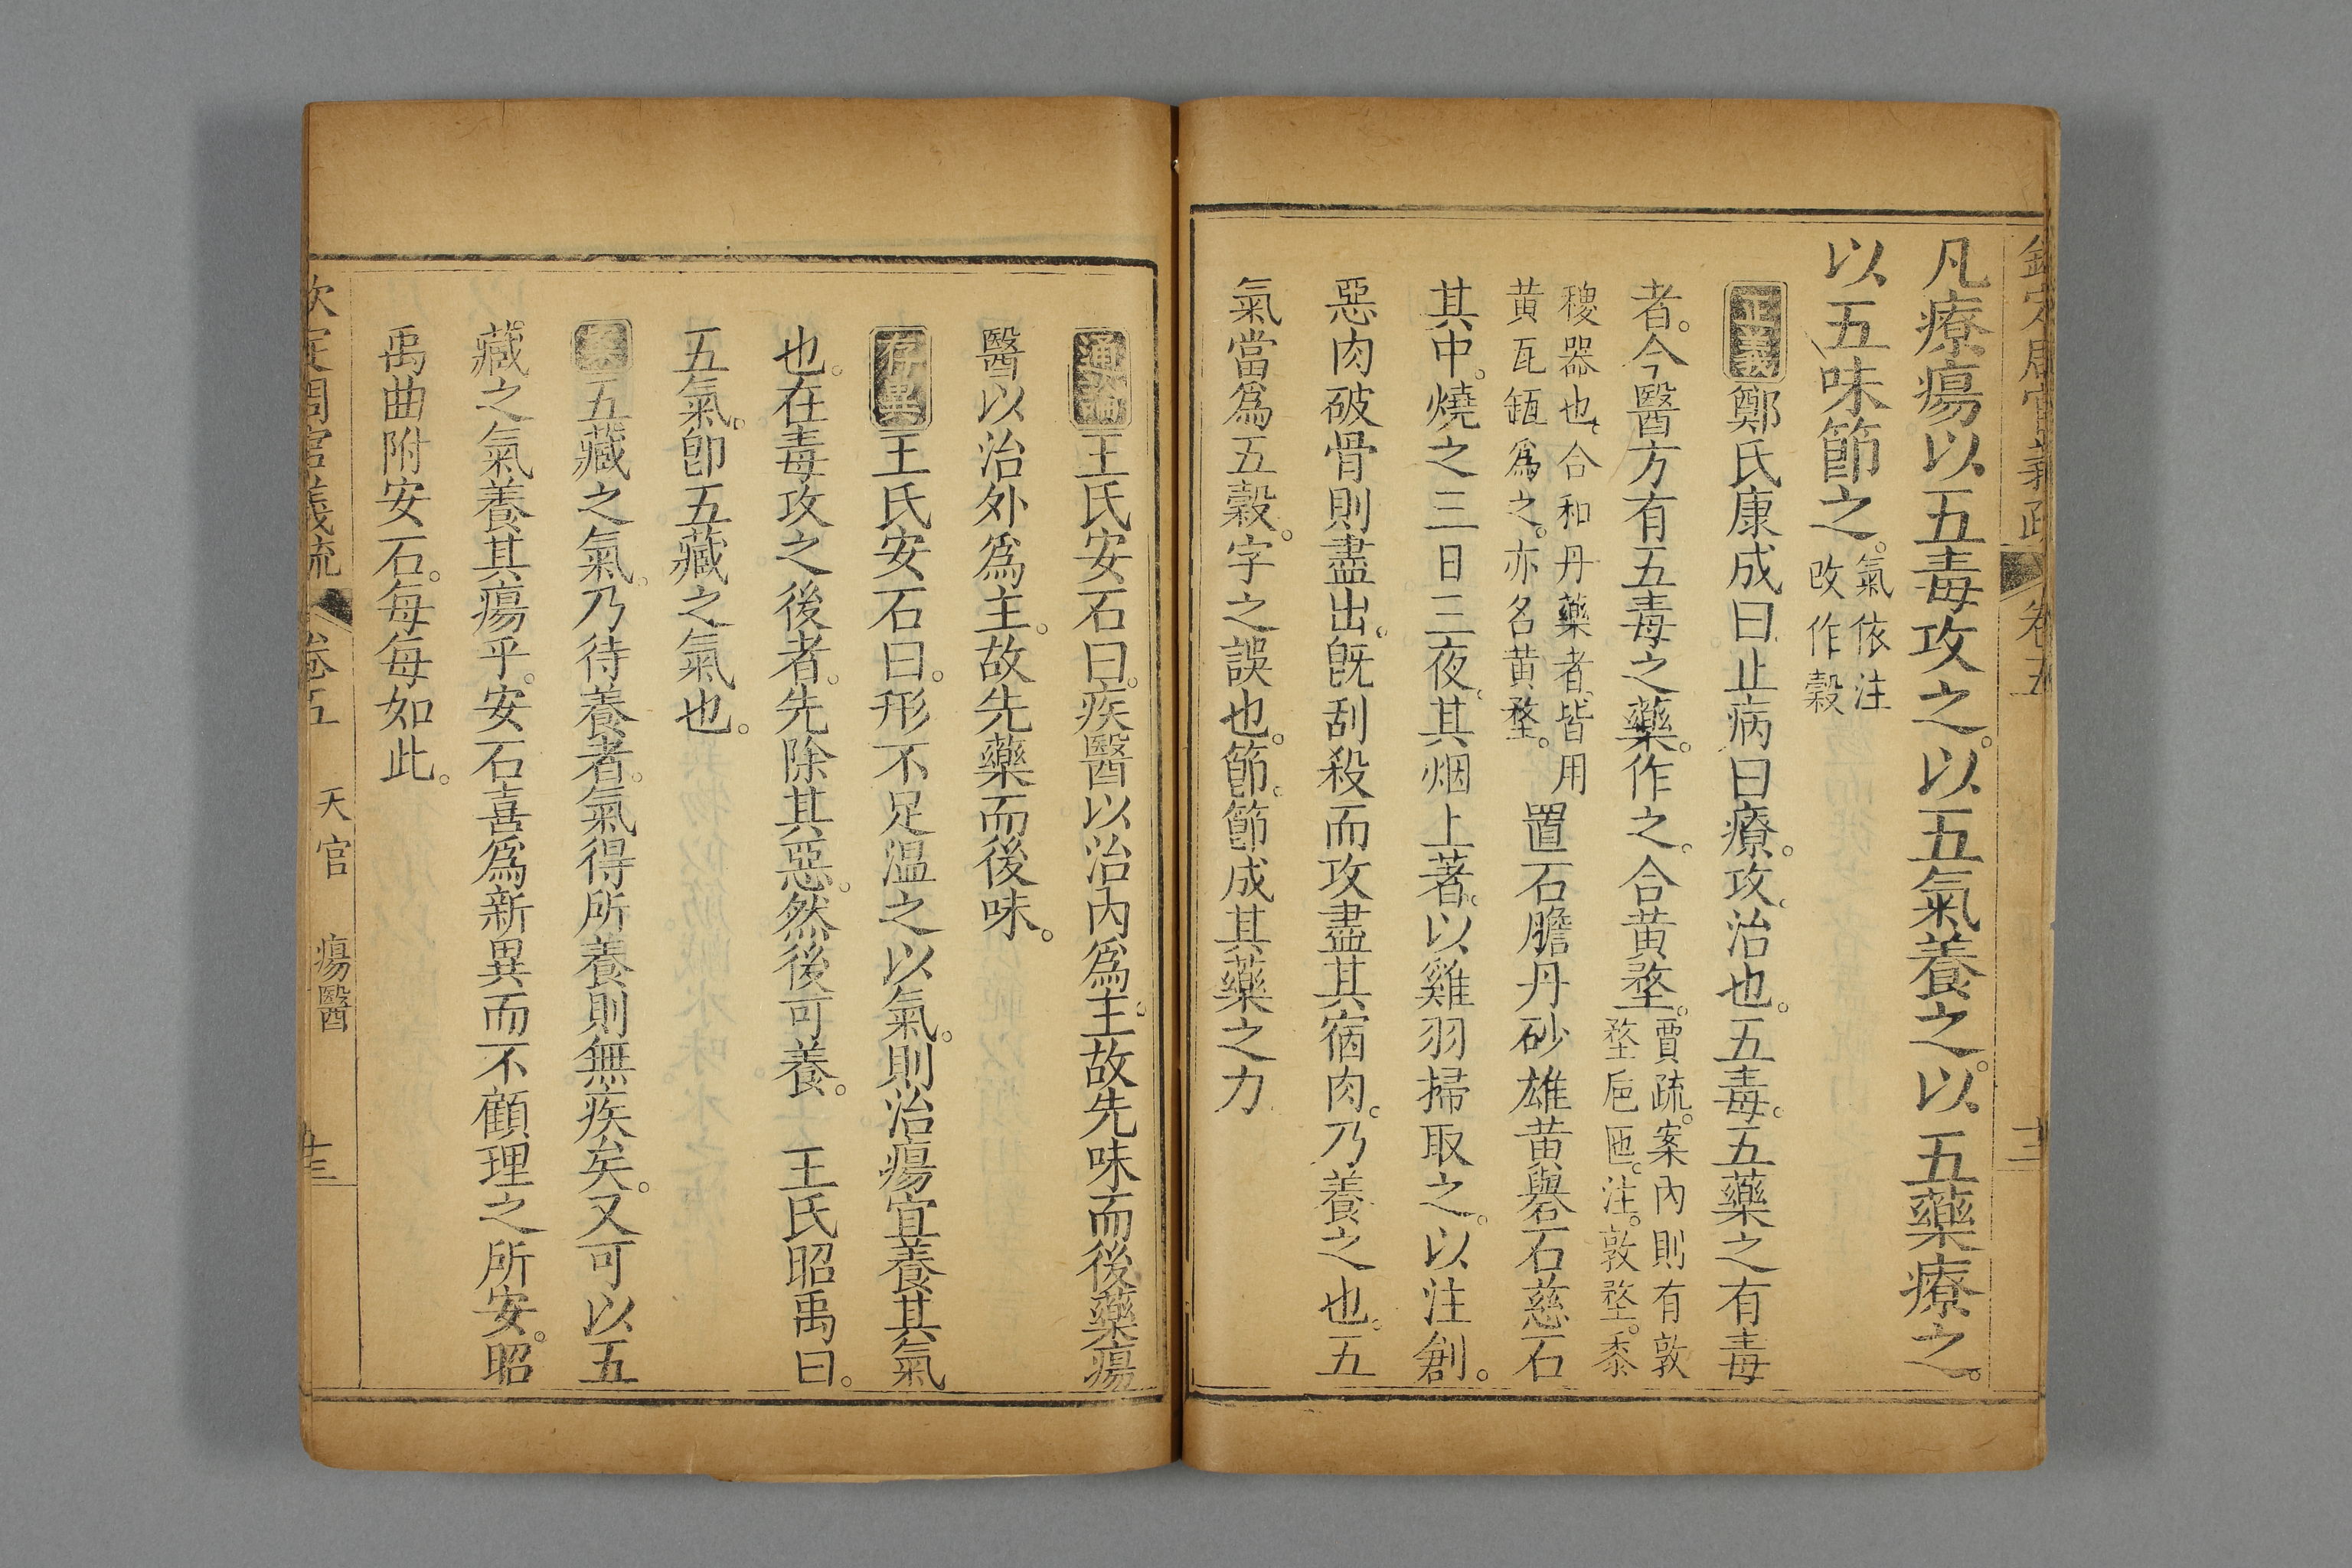 欽定周官義疏 卷五
凡療瘍以五毒攻之。以五氣養之。以五藥療之。
以五味節之。氣依注改作穀
正義鄭氏康成曰止病曰療。攻。治也。五毒。五藥之有毒
者。今醫方有五毒之藥。作之。合黃堥。賈疏。案內則有敦堥卮匜。注。敦堥。黍
稷器也。合和丹藥者。皆用黃瓦缻爲之。亦名黃堥。置石膽丹砂雄黃礜石慈石
其中。燒之三日三夜。其烟上著。以雞羽掃取之。以注創。
惡肉破骨則盡出。旣刮殺而攻盡其宿肉。乃養之也。五
氣當爲五穀。字之誤也。節。節成其藥之力
通論王氏安石曰。疾醫以治內爲主。故先味而後藥瘍
醫以治外爲主。故先藥而後味。
存異王氏安石曰。形不足温之以氣。則治瘍宜養其氣
也。在毒攻之後者。先除其惡。然後可養。 王氏昭禹曰。
五氣。卽五藏之氣也。
案五藏之氣。乃待養者。氣得所養則無疾矣。又可以五
藏之氣養其瘍乎。安石喜爲新異而不顧理之所安。昭
禹曲附安石。每每如此。
欽定周官義疏 卷五 天官 瘍醫